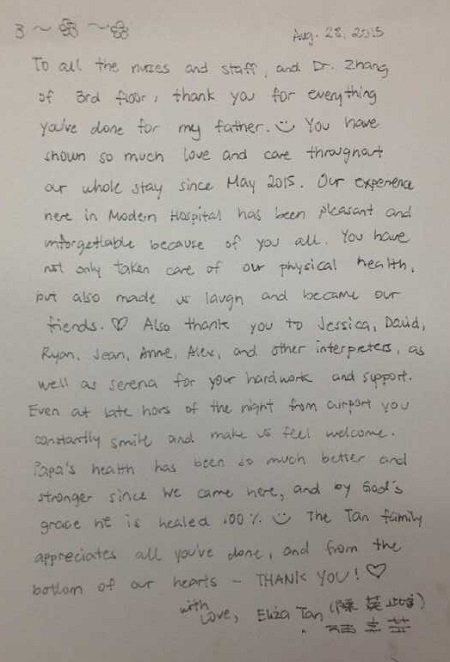 Aug. 28, 2015
To all the nurses and staff, and Dr. Zhang
of 3rd floor, thank you for everything
you've done for my father. You have
shown so much love and care throughout
our whole stay since May 2015. Our experience
here in Modern Hospital has been pleasant and
unforgettable because of you all. You have
not only taken care of our physical health,
but also made us laugh and became our
friends. ♡ Also thank you to Jessica, David,
Ryan, Jean, Anne, Alex, and other interpreters, as
well as Serena for your hardwork and support.
Even at late hors of the night from airport you
constantly smile and make us feel welcome.
Papa's health has been so much better and
stronger since we came here, and by God's
grace he is healed 100%. The Tan family
appreciates all you've done, and from the
bottom of our hearts – THANK YOU! ♡
with
Love, Eliza Tan (陳